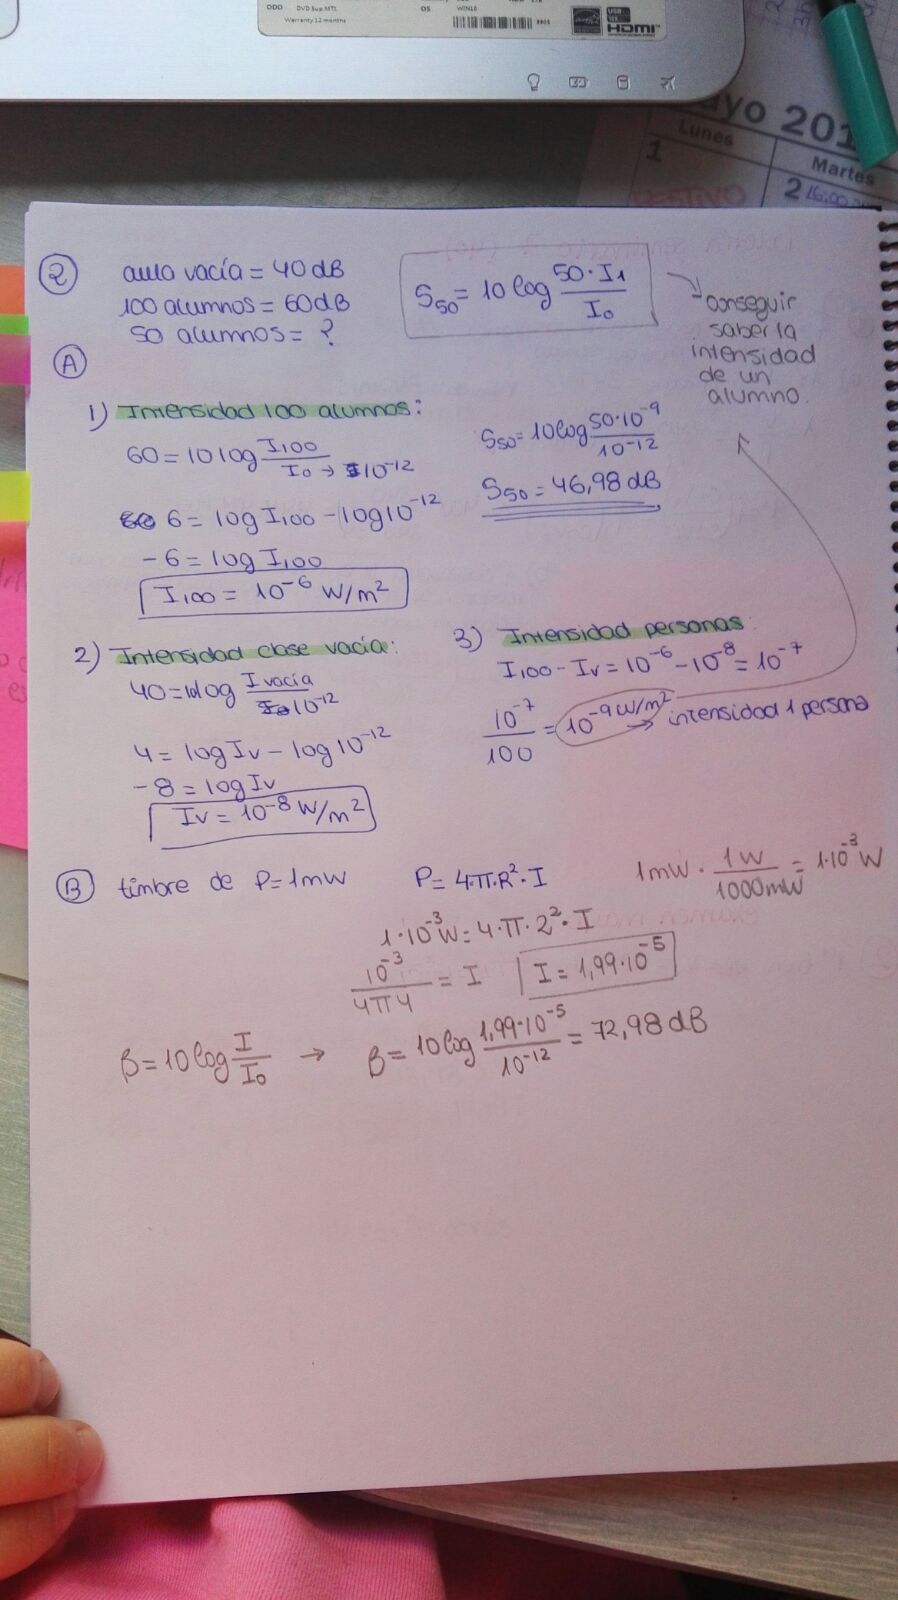 ODD DVD Sup.MTL OS WIN10
Warranty 12 months
HDMI
mayo 201
Lunes
Martes
1
2 16:00
FESTIVO
② aula vacía = 40 dB
100 alumnos = 60 dB
50 alumnos = ?
S₅₀ = 10 log 50·I₁ / I₀
→ conseguir
saber la
intensidad
de un
alumno.
Ⓐ
1) Intensidad 100 alumnos:
60 = 10 log I₁₀₀ / I₀ → 10⁻¹²
6 = log I₁₀₀ - log 10⁻¹²
-6 = log I₁₀₀
I₁₀₀ = 10⁻⁶ W/m²
S₅₀ = 10 log 50·10⁻⁹ / 10⁻¹²
S₅₀ = 46,98 dB
2) Intensidad clase vacía:
40 = 10 log I vacía / 10⁻¹²
4 = log Iv - log 10⁻¹²
-8 = log Iv
Iv = 10⁻⁸ W/m²
3) Intensidad personas:
I₁₀₀ - Iv = 10⁻⁶ - 10⁻⁸ = 10⁻⁷
10⁻⁷ / 100 = 10⁻⁹ W/m² → intensidad 1 persona
Ⓑ timbre de P = 1mW P = 4·π·R²·I 1mW · 1W / 1000mW = 1·10⁻³ W
1·10⁻³ W = 4·π·2²·I
10⁻³ / 4π4 = I I = 1,99·10⁻⁵
β = 10 log I / I₀ → β = 10 log 1,99·10⁻⁵ / 10⁻¹² = 72,98 dB